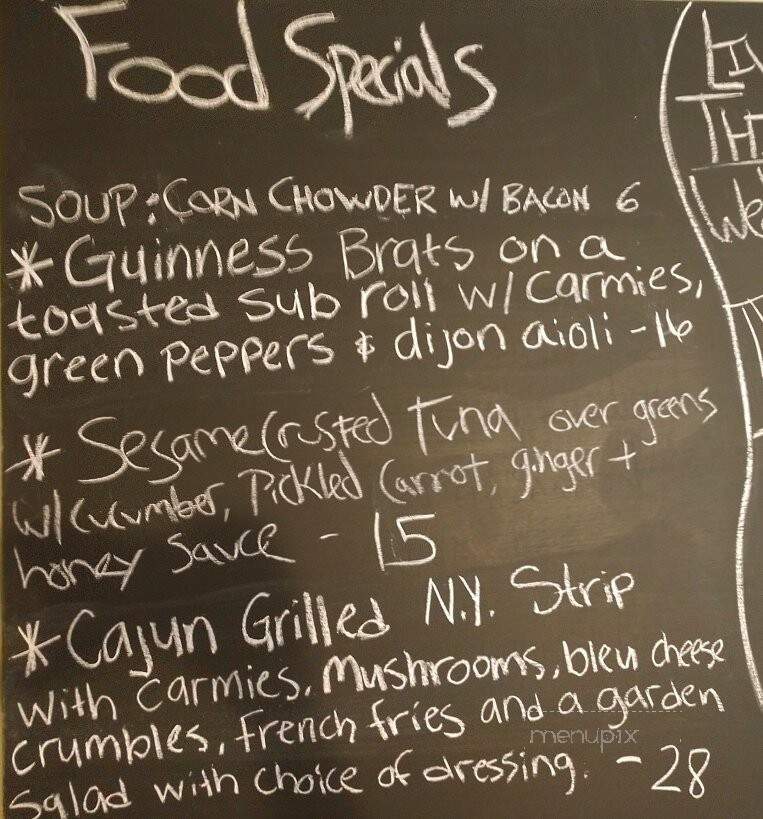 Food Specials
SOUP: CORN CHOWDER W/ BACON 6
* Guinness Brats on a
toasted sub roll w/ carmies,
green peppers & dijon aioli - 16
* Sesame Crusted Tuna over greens
w/ cucumber, Pickled Carrot, ginger +
honey Sauce - 15
* Cajun Grilled N.Y. Strip
with carmies, Mushrooms, bleu cheese
crumbles, french fries and a garden
Salad with choice of dressing. - 28
menupix